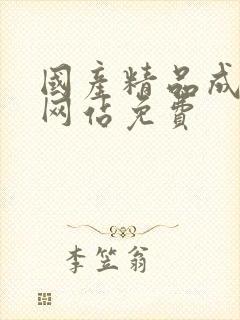 國產精品成
网站免费
李笠翁